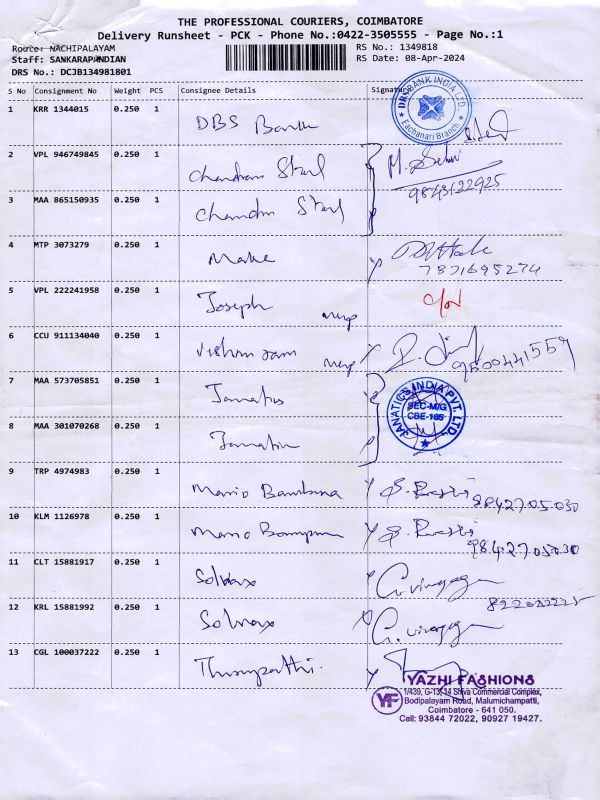 THE PROFESSIONAL COURIERS, COIMBATORE
Delivery Runsheet - PCK - Phone No.:0422-3505555 - Page No.:1
Route: NACHIPALAYAM
RS No.: 1349818
Staff: SANKARAPANDIAN
RS Date: 08-Apr-2024
DRS No.: DCJB134981801
S No Consignment No Weight PCS Consignee Details Signature
DBS BANK INDIA LTD.
Eachanari Branch
1 KRR 1344015 0.250 1 DBS Bank
2 VPL 946749845 0.250 1 Chandran Starl
9843122925
3 MAA 865150935 0.250 1 Starl
4 MTP 3073279 0.250 1 Make
7871695274
5 VPL 222241958 0.250 1 Joseph
6 CCU 911134040 0.250 1
9500441557
7 MAA 573705851 0.250 1
JANATICS INDIA PVT. LTD.
SEC-M/G
CBE-105
8 MAA 301070268 0.250 1
9 TRP 4974983 0.250 1 Mario Bambina
9842705030
10 KLM 1126978 0.250 1 Mario
9842705030
11 CLT 15881917 0.250 1
12 KRL 15881992 0.250 1
13 CGL 100037222 0.250 1 Thirupathi.
YAZHI FASHIONS
YF
1/439, G-13, 14 Shiva Commercial Complex,
Bodipalayam Road, Malumichampatti,
Coimbatore - 641 050.
Cell: 93844 72022, 90927 19427.